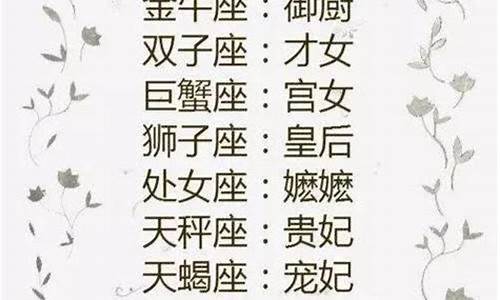 金牛座：御厨
双子座：才女
巨蟹座：宫女
狮子座：皇后
处女座：嬷嬷
天秤座：贵妃
天蝎座：宠妃